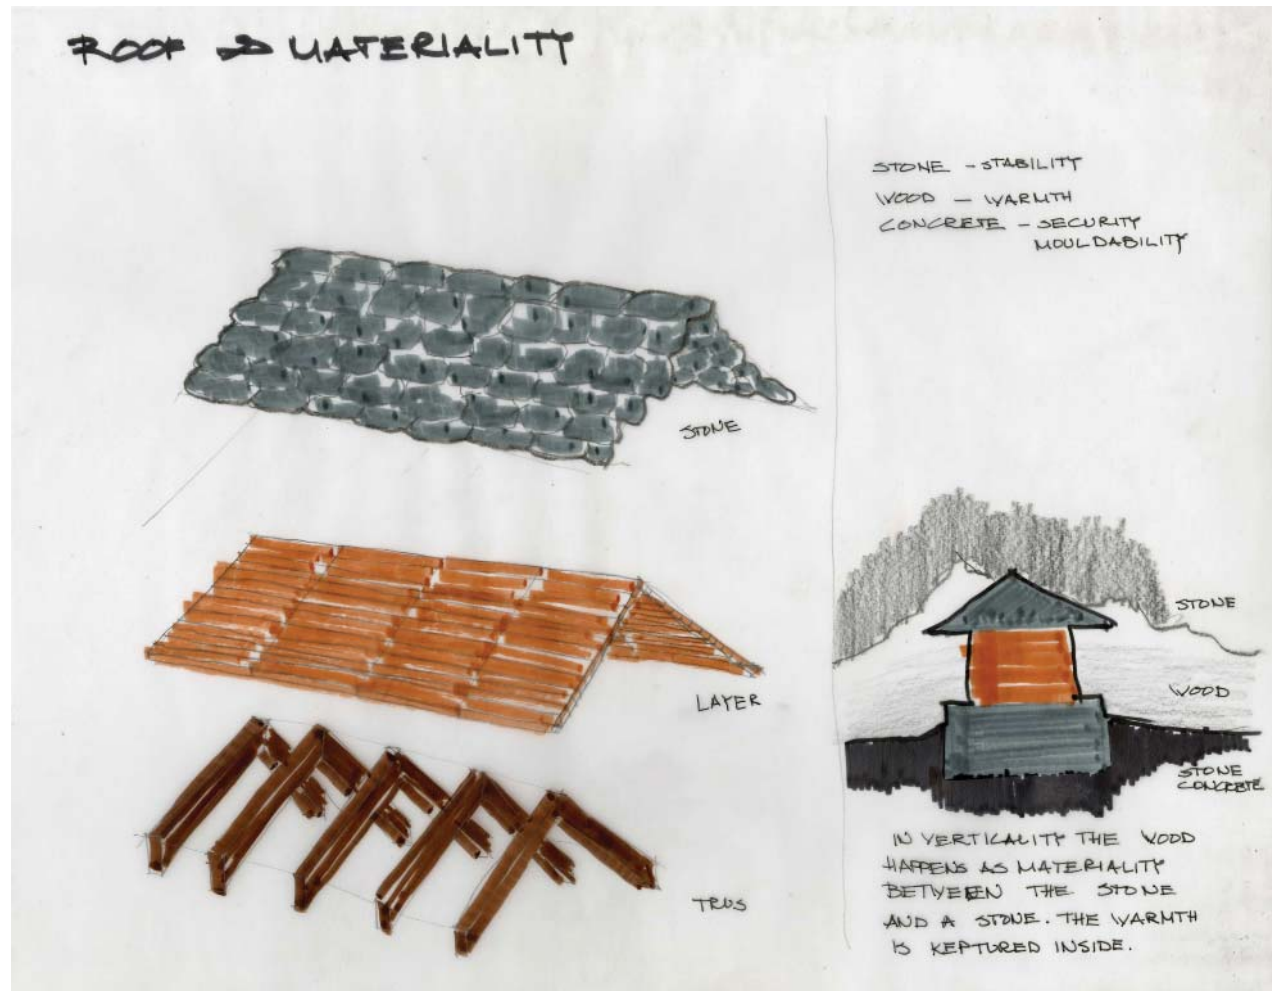 ROOF → MATERIALITY
STONE – STABILITY
WOOD – WARMTH
CONCRETE – SECURITY
MOULDABILITY
STONE
LAYER
TRUS
STONE
WOOD
STONE
CONCRETE
IN VERTICALITY THE WOOD
HAPPENS AS MATERIALITY
BETWEEN THE STONE
AND A STONE. THE WARMTH
IS KEPTURED INSIDE.